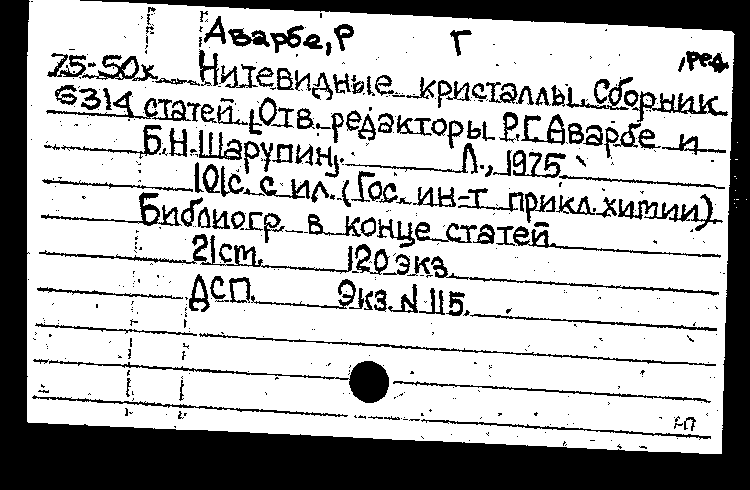 Аварбе, Р Г , ред.
75-50х Нитевидные кристаллы. Сборник
6314 статей. [Отв. редакторы Р.Г. Аварбе и
Б.Н. Шарупин].. Л., 1975.
101с. с ил. (Гос. ин-т прикл. химии).
Библиогр. в конце статей.
21 ст. 120 экз.
ДСП. Экз. N 115.